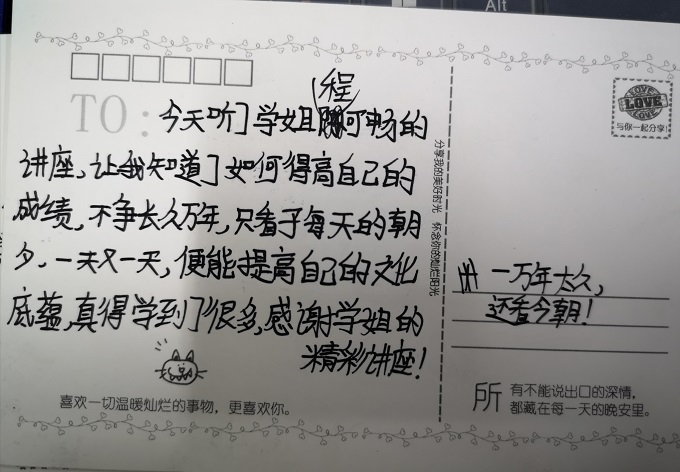 Alt
TO：
程
今天听了学姐可畅的
讲座，让我知道了如何得高自己的
成绩，不争长久万年，只看子每天的朝
夕。一天又一天，便能提高自己的文化
底蕴，真得学到了很多，感谢学姐的
精彩讲座！
喜欢一切温暖灿烂的事物，更喜欢你。
分享我的美好时光 怀念你的灿烂阳光
LOVE
LOVE
LOVE
与你一起分享！
一万年太久，
还看今朝！
所 有不能说出口的深情，
都藏在每一天的晚安里。